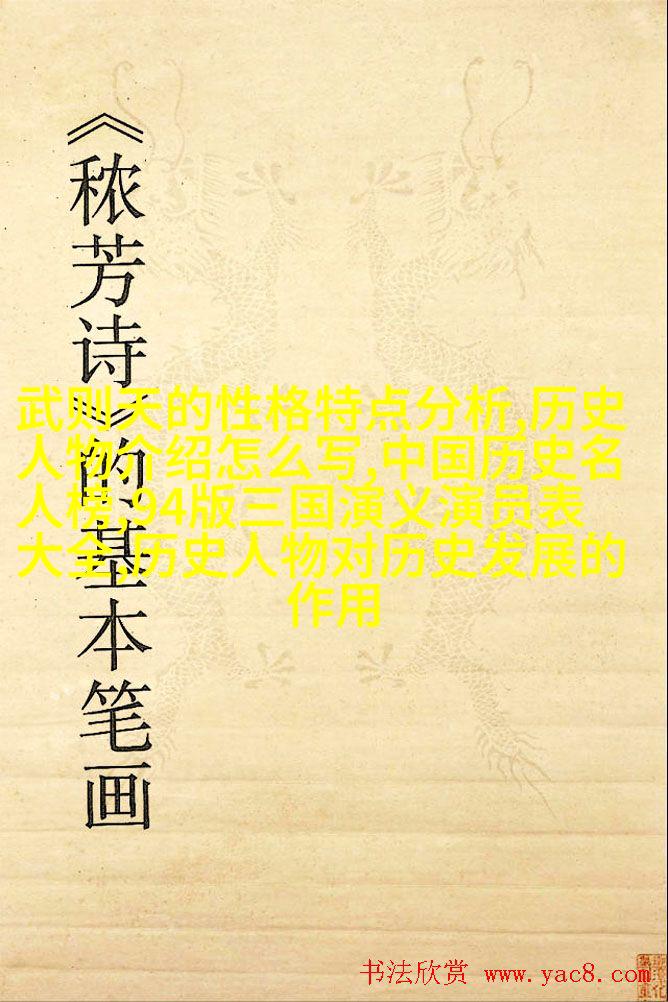 《秾芳诗》的基本笔画
武则天的性格特点分析,历史
人物介绍怎么写,中国历史名
人榜,94版三国演义演员表
大全,历史人物对历史发展的
作用
书法欣赏 www.yac8.com